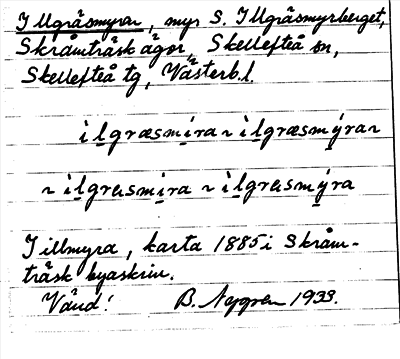 Illgräsmyran, myr S. Illgräsmyrberget,
Skråmträsk ägor, Skellefteå sn,
Skellefteå tg, Västerb.l.
ilgræsmira ~ ilgræsmýran
~ ilgresmira ~ ilgresmýra
Illmyra, karta 1885 i Skråm-
träsk byaskrin.
Vänd! B. Nygren 1933.